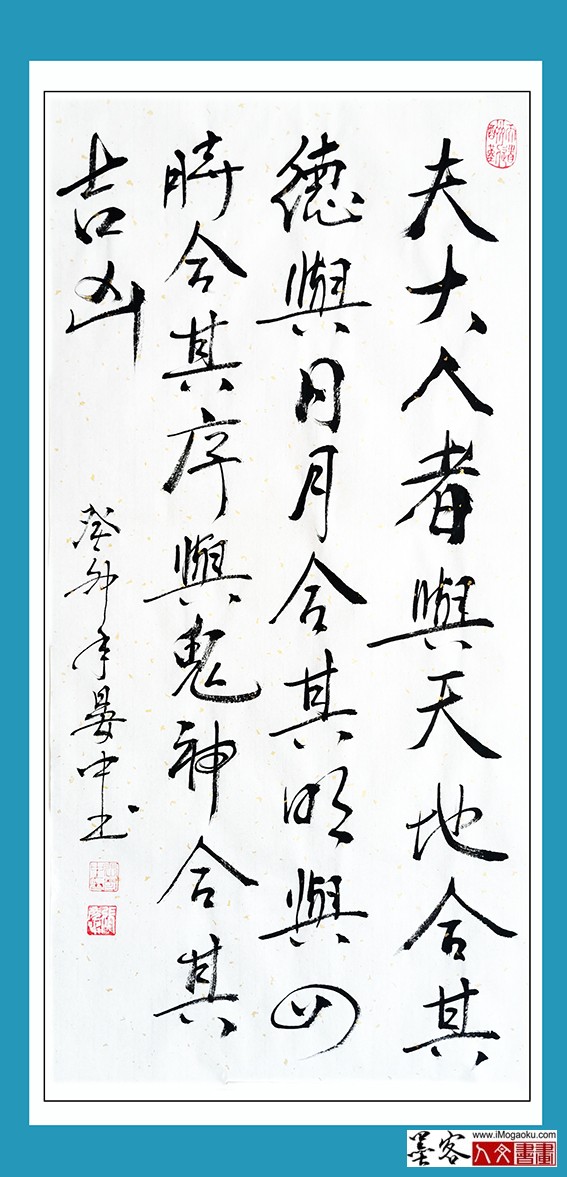 夫大人者與天地合其
德與日月合其明與四
時合其序與鬼神合其
吉凶
癸卯年晏中书
www.iMogaoku.com
墨客
人文書畫